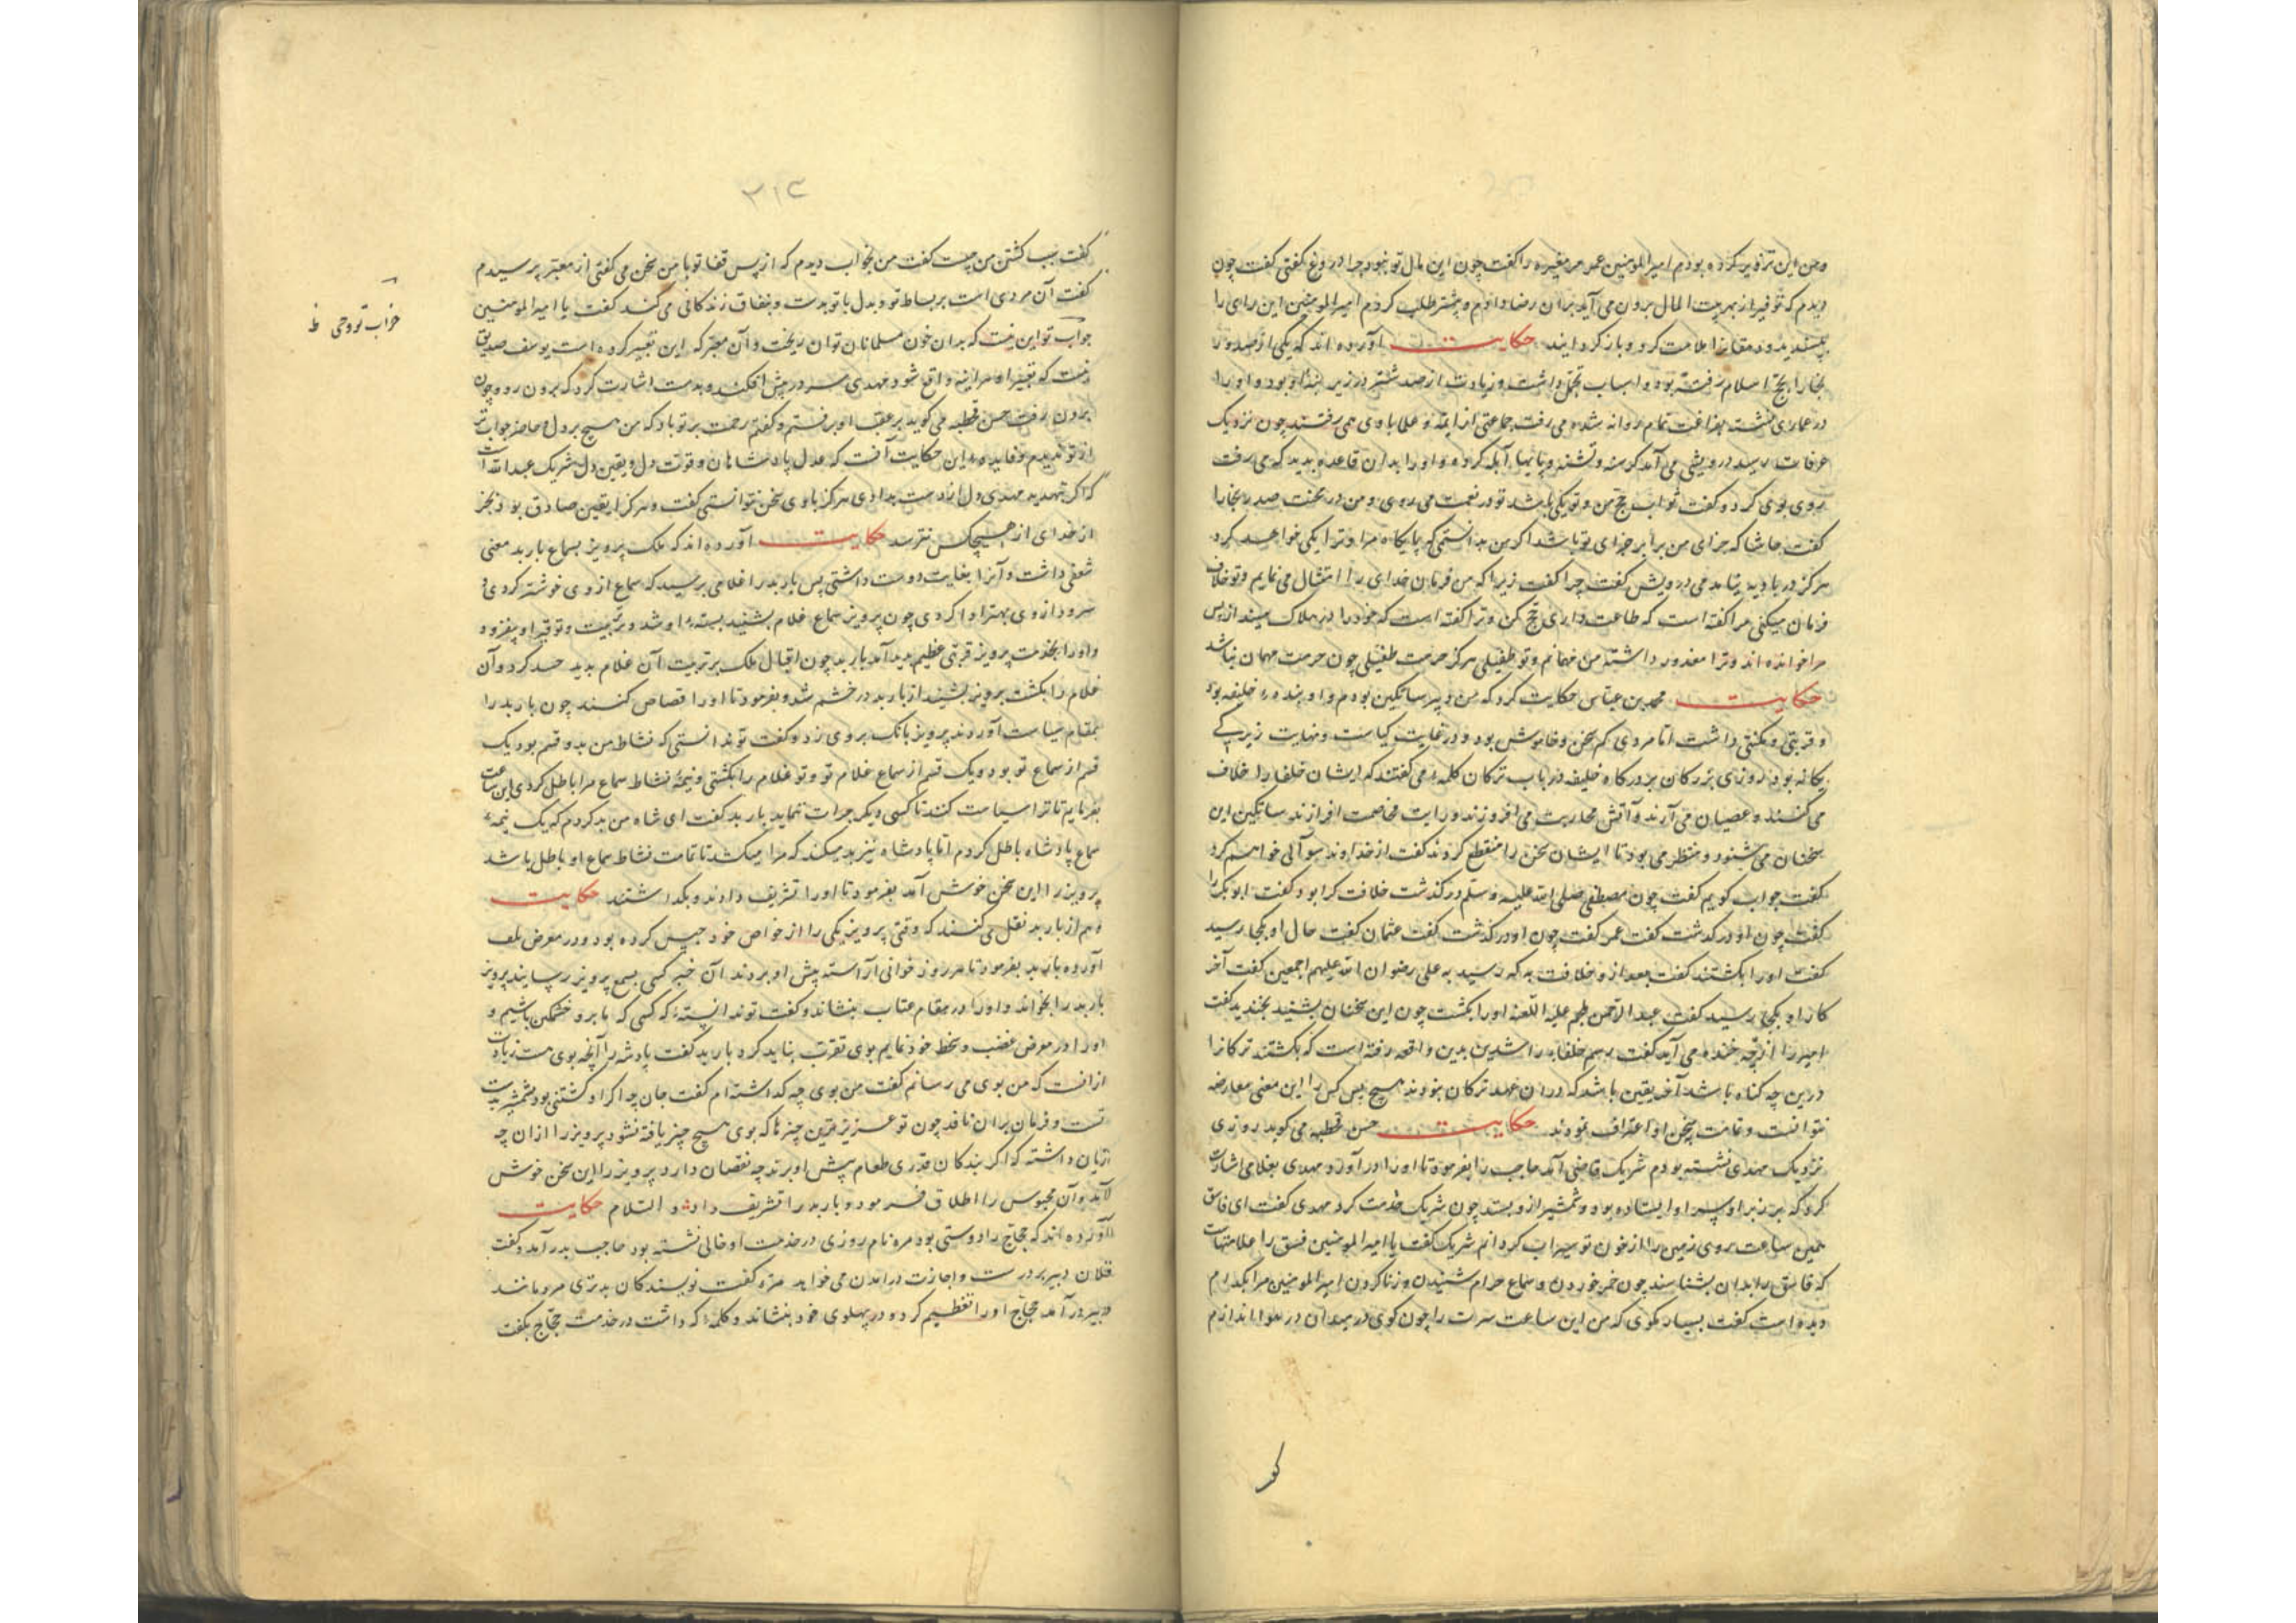 ومن این تزویر کرده بودم امیر المومنین عمر مر مغیره را گفت چون این مال تو نبود چرا دروغ گفتی گفت چون
دیدم که توفیر از بهر بیت المال برون می آید بران رضا دادم و بیشتر طلب کردم امیر المومنین این رای را
پسندیده و دهقانرا ملامت کرد و باز گردانید حکایت آورده اند که یکی از صدور
بخارا بحج اسلام رفته بود و اسباب تجمل داشت و زیادت از صد شتر در زیر بنه او بود و او را
در عماری نشسته بفراغت تمام روانه شده می رفت جماعتی از ایمه و علما با وی می رفتند چون نزدیک
عرفات رسید درویشی می آمد کرسنه و تشنه و پایها آبله کرده و او را بدان قاعده بدید که می رفت
روی بوی کرد و گفت ثواب حج من و تو یکی باشد تو در نعمت می روی و من در محنت صدر بخارا
گفت حاشا که جزای من برابر جزای تو باشد اگر من بدانستمی که پایگاه مرا و ترا یکی خواهد کرد
هرگز در بادیه نیامدمی درویش گفت چرا گفت زیرا که من فرمان خدای را امتثال می نمایم و تو خلاف
فرمان میکنی مرا گفته است که طاعت داری حج کن و ترا گفته است که خود را در هلاک میندازپس
مرا خوانده اند و ترا معذور داشته من مهمانم و تو طفیلی هرگز حرمت طفیلی چون حرمت مهمان نباشد
حکایت محمد بن عباس حکایت کرد که من و پسر ساتکین بودم و او بنده خلیفه بود
و قربتی و مکنتی داشت اما مردی کم سخن و خاموش بود و در غایت کیاست و نهایت زیرکی
یگانه بود روزی بزرگان بر درگاه خلیفه در باب ترکان کلمه می گفتند که ایشان خلفا را خلاف
می کنند و عصیان می آرند و آتش محاربت می افروزند و رایت مخاصمت افرازند ساتکین این
سخنان می شنود و منتظر می بود تا ایشان سخن را منقطع کردند گفت از خداوند سوآلی خواهم کرد
گفت جواب گویم گفت چون مصطفی صلی الله علیه وسلم در گذشت خلافت کرا بود گفت ابوبکر را
گفت چون او در گذشت گفت عمر گفت چون او در گذشت گفت عثمان گفت حال او بکجا رسید
گفت او را بکشتند گفت بعد از و خلافت به که رسید به علی رضوان الله علیهم اجمعین گفت آخر
کار او بکجا رسید گفت عبد الرحمن ملجم علیه اللعنه او را بکشت چون این سخنان بشنید بخندید گفت
امیر را از چه خنده می آید گفت بر سم خلفاء راشدین بدین واقعه رفته است که بکشتند ترکانرا
درین چه گناه باشد آخر یقین باشد که در ان عهد ترکان نبودند هیچ کس را این معنی معارضه
نتوانست و تمامت سخن او اعتراف نمودند حکایت حسن قحطبه می گوید روزی
نزدیک مهدی نشسته بودم شریک قاضی آمد حاجب را بفرمود تا او را در آورد و مهدی بغلامی اشارت
کرد که بر زبر او پس او ایستاده بود و شمشیر از و بستد چون شریک خدمت کرد مهدی گفت ای فاسق
همین ساعت روی زمین را از خون تو سیراب گردانم شریک گفت یا امیر المومنین فسق را علامتهاست
که فاسق را بدان بشناسند چون خمر خوردن و سماع حرام شنیدن و زنا کردن امیر المومنین مرا بکدام
دیده است گفت بسیار مگوی که من این ساعت سرت را چون گوی در میدان در هوا اندازم
کو
٣١٣
گفت سبب کشتن من چیست گفت من بخواب دیدم که از پس قفا تو با من سخن می گفتی از معبر پرسیدم
گفت آن مردی است بر بساط تو و بدل با تو بدست و بنفاق زندگانی می کند گفت یا امیر المومنین
جواب تو این نیست که بدان خون مسلمانان توان ریخت و آن معبر که این تعبیر کرده است یوسف صدیق
نیست که تعبیر او هراینه واقع شود مهدی سر در پیش افکند و بدست اشارت کرد که برون رو چون
برون رفت حسن قحطبه می گوید بر عقب او برفتم و گفتم رحمت بر تو باد که من هیچ بر دل حاضر جواب تر
از تو ندیدم و فایده این حکایت آنست که عدل پادشاهان و قوت دل و یقین دل شریک عبد الله است
که اگر تهدید مهدی دل از دست بدادی هرگز با وی سخن نتوانستی گفت و هرکرا یقین صادق بود بجز
از خدای از هیچکس نترسد حکایت آورده اند که ملک پرویز بسماع باربد معنی
شعفی داشت و آنرا بغایت دوست داشتی پس باربد را غلامی برسید که سماع از وی خوشتر کردی و
سرود از وی بهتر ادا کردی چون پرویز سماع غلام بشنید بسته او شد و تربیت و توقیر او بیفزود
و او را بخدمت پرویز قربتی عظیم پدید آمد باربد چون اقبال ملک بر تربیت آن غلام بدید حسد کرد و آن
غلام را بکشت پرویز بشنید از باربد در خشم شد و بفرمود تا او را قصاص کنند چون باربد را
بمقام سیاست آوردند پرویز بانک بروی زد و گفت تو ندانستی که نشاط من بدو قسم بود یک
قسم از سماع تو بود و یک قسم از سماع غلام تو و تو غلام را بکشتی و نیمه نشاط سماع مرا باطل کردی این ساعت
بفرمایم تا ترا سیاست کنند تا کسی دیگر جرات ننماید باربد گفت ای شاه من بد کردم که یک نیمه
سماع پادشاه باطل کردم اما پادشاه نیز بد میکند که مرا میکشد تا تمامت نشاط سماع او باطل باشد
پرویز را این سخن خوش آمد بفرمود تا او را تشریف دادند و بگذاشتند حکایت
هم از باربد نقل می کنند که وقتی پرویز یکی را از خواص خود حبس کرده بود و در معرض تلف
آورده باربد بفرمود تا هر روز خوانی آراسته پیش او بردند آن خبر کسی بسمع پرویز رسانید پرویز
باربد را بخواند و او را در مقام عتاب بنشاند و گفت تو ندانسته که کسی که ما برو خشمگین باشیم و
او را در معرض غضب و سخط خود نمایم بوی تقرب نباید کرد باربد گفت پادشه را آنچه بوی هست زیادت
از انست که من بوی می رسانم گفت من بوی چه گذاشته ام گفت جان چو اگر او کشتنی بود شمشیر بدست
تست و فرمان بران نافذ چون تو عزیزترین چیزها که بوی هیچ چیز یافته نشود پرویز را از ان چه
زیان داشته که اگر بندگان قدری طعام پیش او برند چه نقصان دارد پرویز را این سخن خوش
آمد و آن محبوس را اطلاق فرمود و باربد را تشریف داد و السلام حکایت
آورده اند که حجاج را دوستی بود مره نام روزی در خدمت او خالی نشسته بود حاجب بدر آمد و گفت
فلان دبیر بر درست و اجازت درآمدن می خواهد مره گفت نویسندگان بدتری مردمانند
دبیر در آمد حجاج او را تعظیم کرد و در پهلوی خود بنشاند و کلمه که داشت در خدمت حجاج بگفت